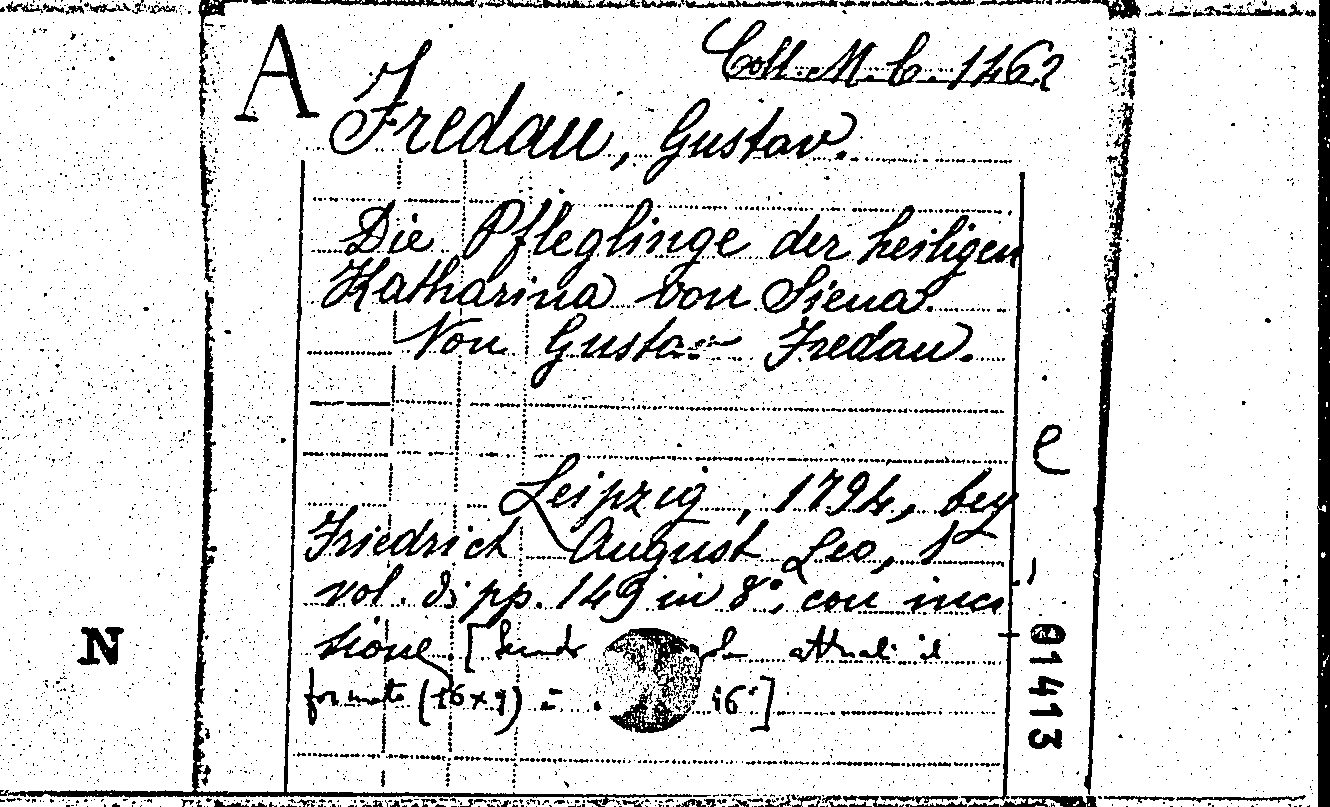 A
Coll. M. C. 1462
Fredau, Gustav.
Die Pfleglinge der heiligen
Katharina von Siena.
Von Gustav Fredau.
e
Leipzig, 1794, bey
Friedrich August Leo, 1
vol. di pp. 149 in 8°, con inci
sione. [ attuali il
formato (16x9) 16°]
N
01413